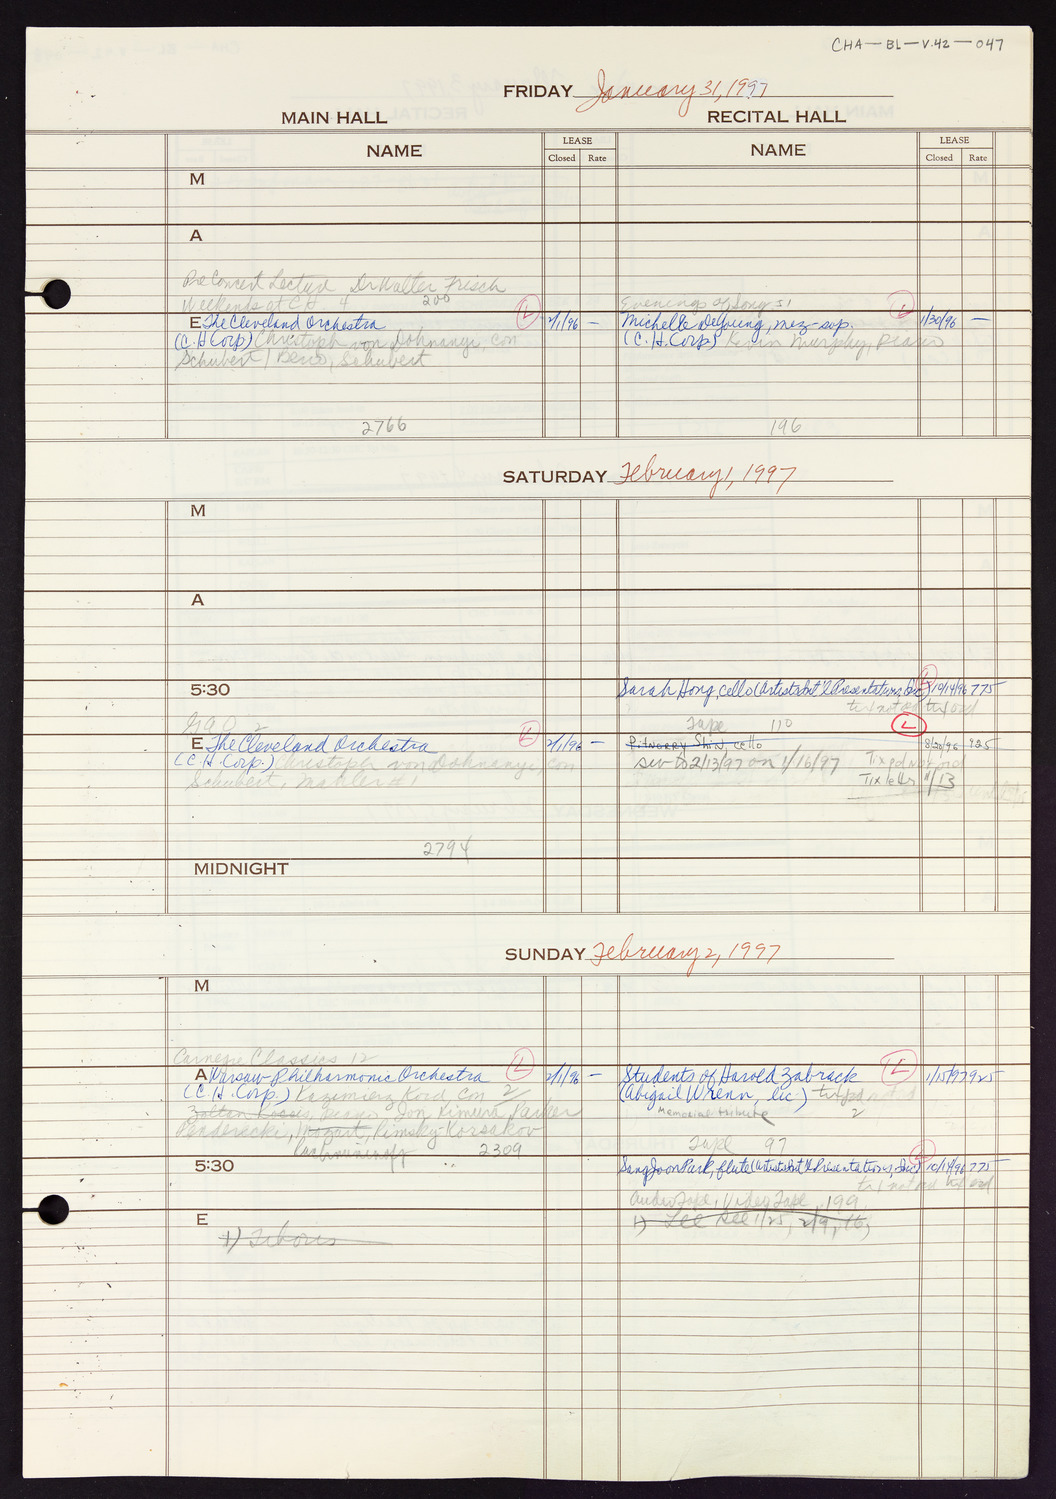 CHA-BL-V.42-047
FRIDAY January 31, 1997
MAIN HALL RECITAL HALL
NAME LEASE Closed Rate NAME LEASE Closed Rate
M
A
Pre Concert Lecture Dr Walter Frisch
Weekends at CH 4 200
Evenings of Song S1
E The Cleveland Orchestra L 2/1/96 —
Michelle DeYoung, mez-sop. L 1/30/96 —
(C.H. Corp) Christoph von Dohnanyi, con
(C.H. Corp) Kevin Murphy, Piano
Schubert / Berio, Schubert
2766 196
SATURDAY February 1, 1997
M
A
5:30 Sarah Hong, cello (Artists Int'l Presentations, Inc) L 10/14/96 775
tix not ord
2
Tape 110 L
E The Cleveland Orchestra L 2/1/96 —
Shin, cello 8/20/96 925
(C.H. Corp.) Christoph von Dohnanyi, con
2/13/97 on 1/16/97 Tix pd not ord
Schubert, Mahler #1
Tix 11/13
2794
MIDNIGHT
SUNDAY February 2, 1997
M
Carnegie Classics 12
A Warsaw Philharmonic Orchestra L 2/1/96 —
Students of Harold Zabrack L 1/15/97 925
(C.H. Corp.) Kazimierz Kord, con 2
(Abigail Wrenn, lic.) tix pd not ord
Memorial tribute
2
Zoltan Kocsis, piano Jon Kimura Parker
Penderecki, Mozart, Rimsky-Korsakov
Rachmaninoff 2309
Tape 97
5:30 Sang Joon Park, flute (Artists Int'l Presentations, Inc) L 10/14/96 775
tix not ord
Audio Tape, Video Tape 199
E
1) Lee See 1/25, 2/9, 16,
1) Tiboris